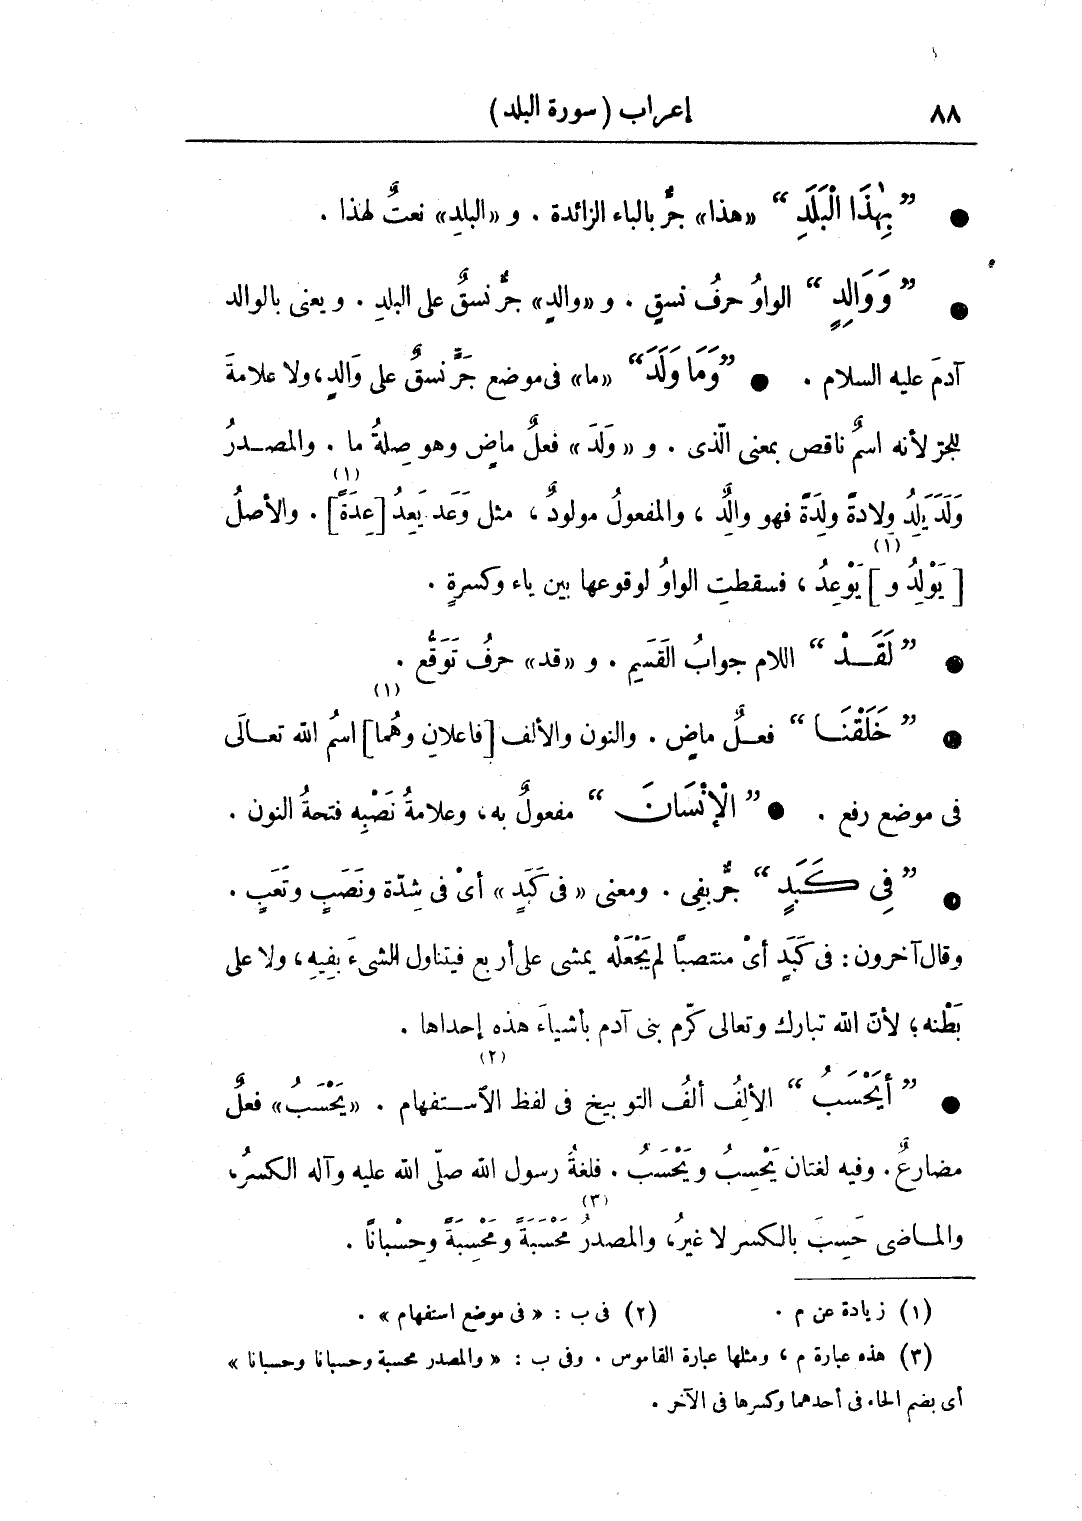 ٨٨ إعراب (سورة البلد)
● ”بِهٰذَا الْبَلَدِ“ «هذا» جرٌّ بالباء الزائدة . و «البلدِ» نعتٌ لهذا .
● ”وَوَالِدٍ“ الواوُ حرفُ نسقٍ . و «والدٍ» جرٌّ نسقٌ على البلدِ . ويعنى بالوالد
آدمَ عليه السلام . ● ”وَمَا وَلَدَ“ «ما» فى موضع جَرٍّ نسقٌ على وَالدٍ، ولا علامةَ
للجرّ لأنه اسمٌ ناقص بمعنى الّذى . و «وَلدَ» فعلٌ ماضٍ وهو صِلةُ ما . والمصدرُ
وَلَدَ يَلِدُ وِلادةً ولِدَةً فهو والدٌ ، والمفعولُ مولودٌ ، مثل وَعَد يَعِدُ [عِدَةً](١) . والأصلُ
[يَوْلِدُ و](١) يَوْعِدُ ، فسقطتِ الواوُ لوقوعها بين ياء وكسرةٍ .
● ”لَقَدْ“ اللام جوابُ القَسَمِ . و «قد» حرفُ تَوَقُّع .
● ”خَلَقْنَا“ فعلٌ ماضٍ . والنون والألف [فاعلانِ وهُما](١) اسمُ الله تعالَى
فى موضع رفع . ● ”الْإِنْسَانَ“ مفعولٌ به، وعلامةُ نَصْبِه فتحةُ النون .
● ”فِى كَبَدٍ“ جرٌّ بفِى . ومعنى «فى كَبَدٍ» أىْ فى شِدّة ونَصَبٍ وتَعَبٍ .
وقال آخرون : فى كَبَدٍ أىْ منتصبًا لم يَجْعَلْه يمشى على أربع فيتناول الشىءَ بفِيهِ، ولا على
بَطْنه؛ لأنّ الله تبارك وتعالى كرّم بنى آدم بأشياءَ هذه إحداها .
● ”أَيَحْسَبُ“ الألِفُ ألفُ التوبيخ فى لفظ الآستفهام(٢) . «يَحْسَبُ» فعلٌ
مضارعٌ . وفيه لغتان يَحْسِبُ ويَحْسَبُ . فلغةُ رسول الله صلّى الله عليه وآله الكسرُ،
والماضى حَسِبَ بالكسر لا غيرُ، والمصدرُ(٣) مَحْسَبَةً ومَحْسِبَةً وحِسْبانًا .
(١) زيادة عن م . (٢) فى ب : «فى موضع استفهام» .
(٣) هذه عبارة م ، ومثلها عبارة القاموس . وفى ب : «والمصدر محسبة وحسبانا وحسبانا»
أى بضم الحاء فى أحدهما وكسرها فى الآخر .